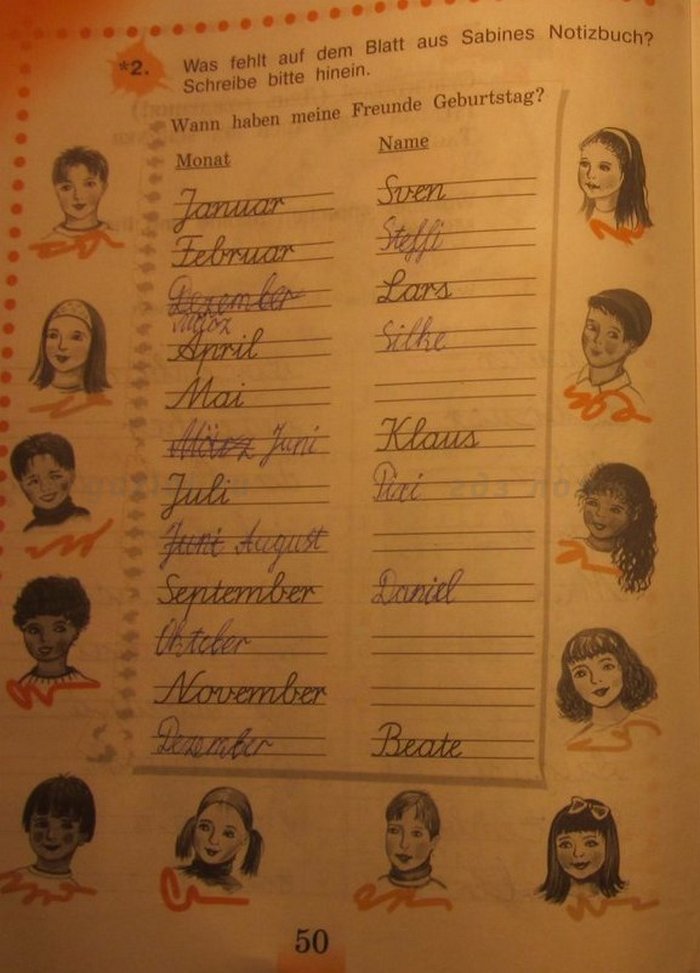 *2. Was fehlt auf dem Blatt aus Sabines Notizbuch?
Schreibe bitte hinein.
Wann haben meine Freunde Geburtstag?
Monat Name
Januar Sven
Februar Steffi
Dezember Lars
März
April Silke
Mai
März Juni Klaus
Juli Pixi
Juni August
September Daniel
Oktober
November
Dezember Beate
50